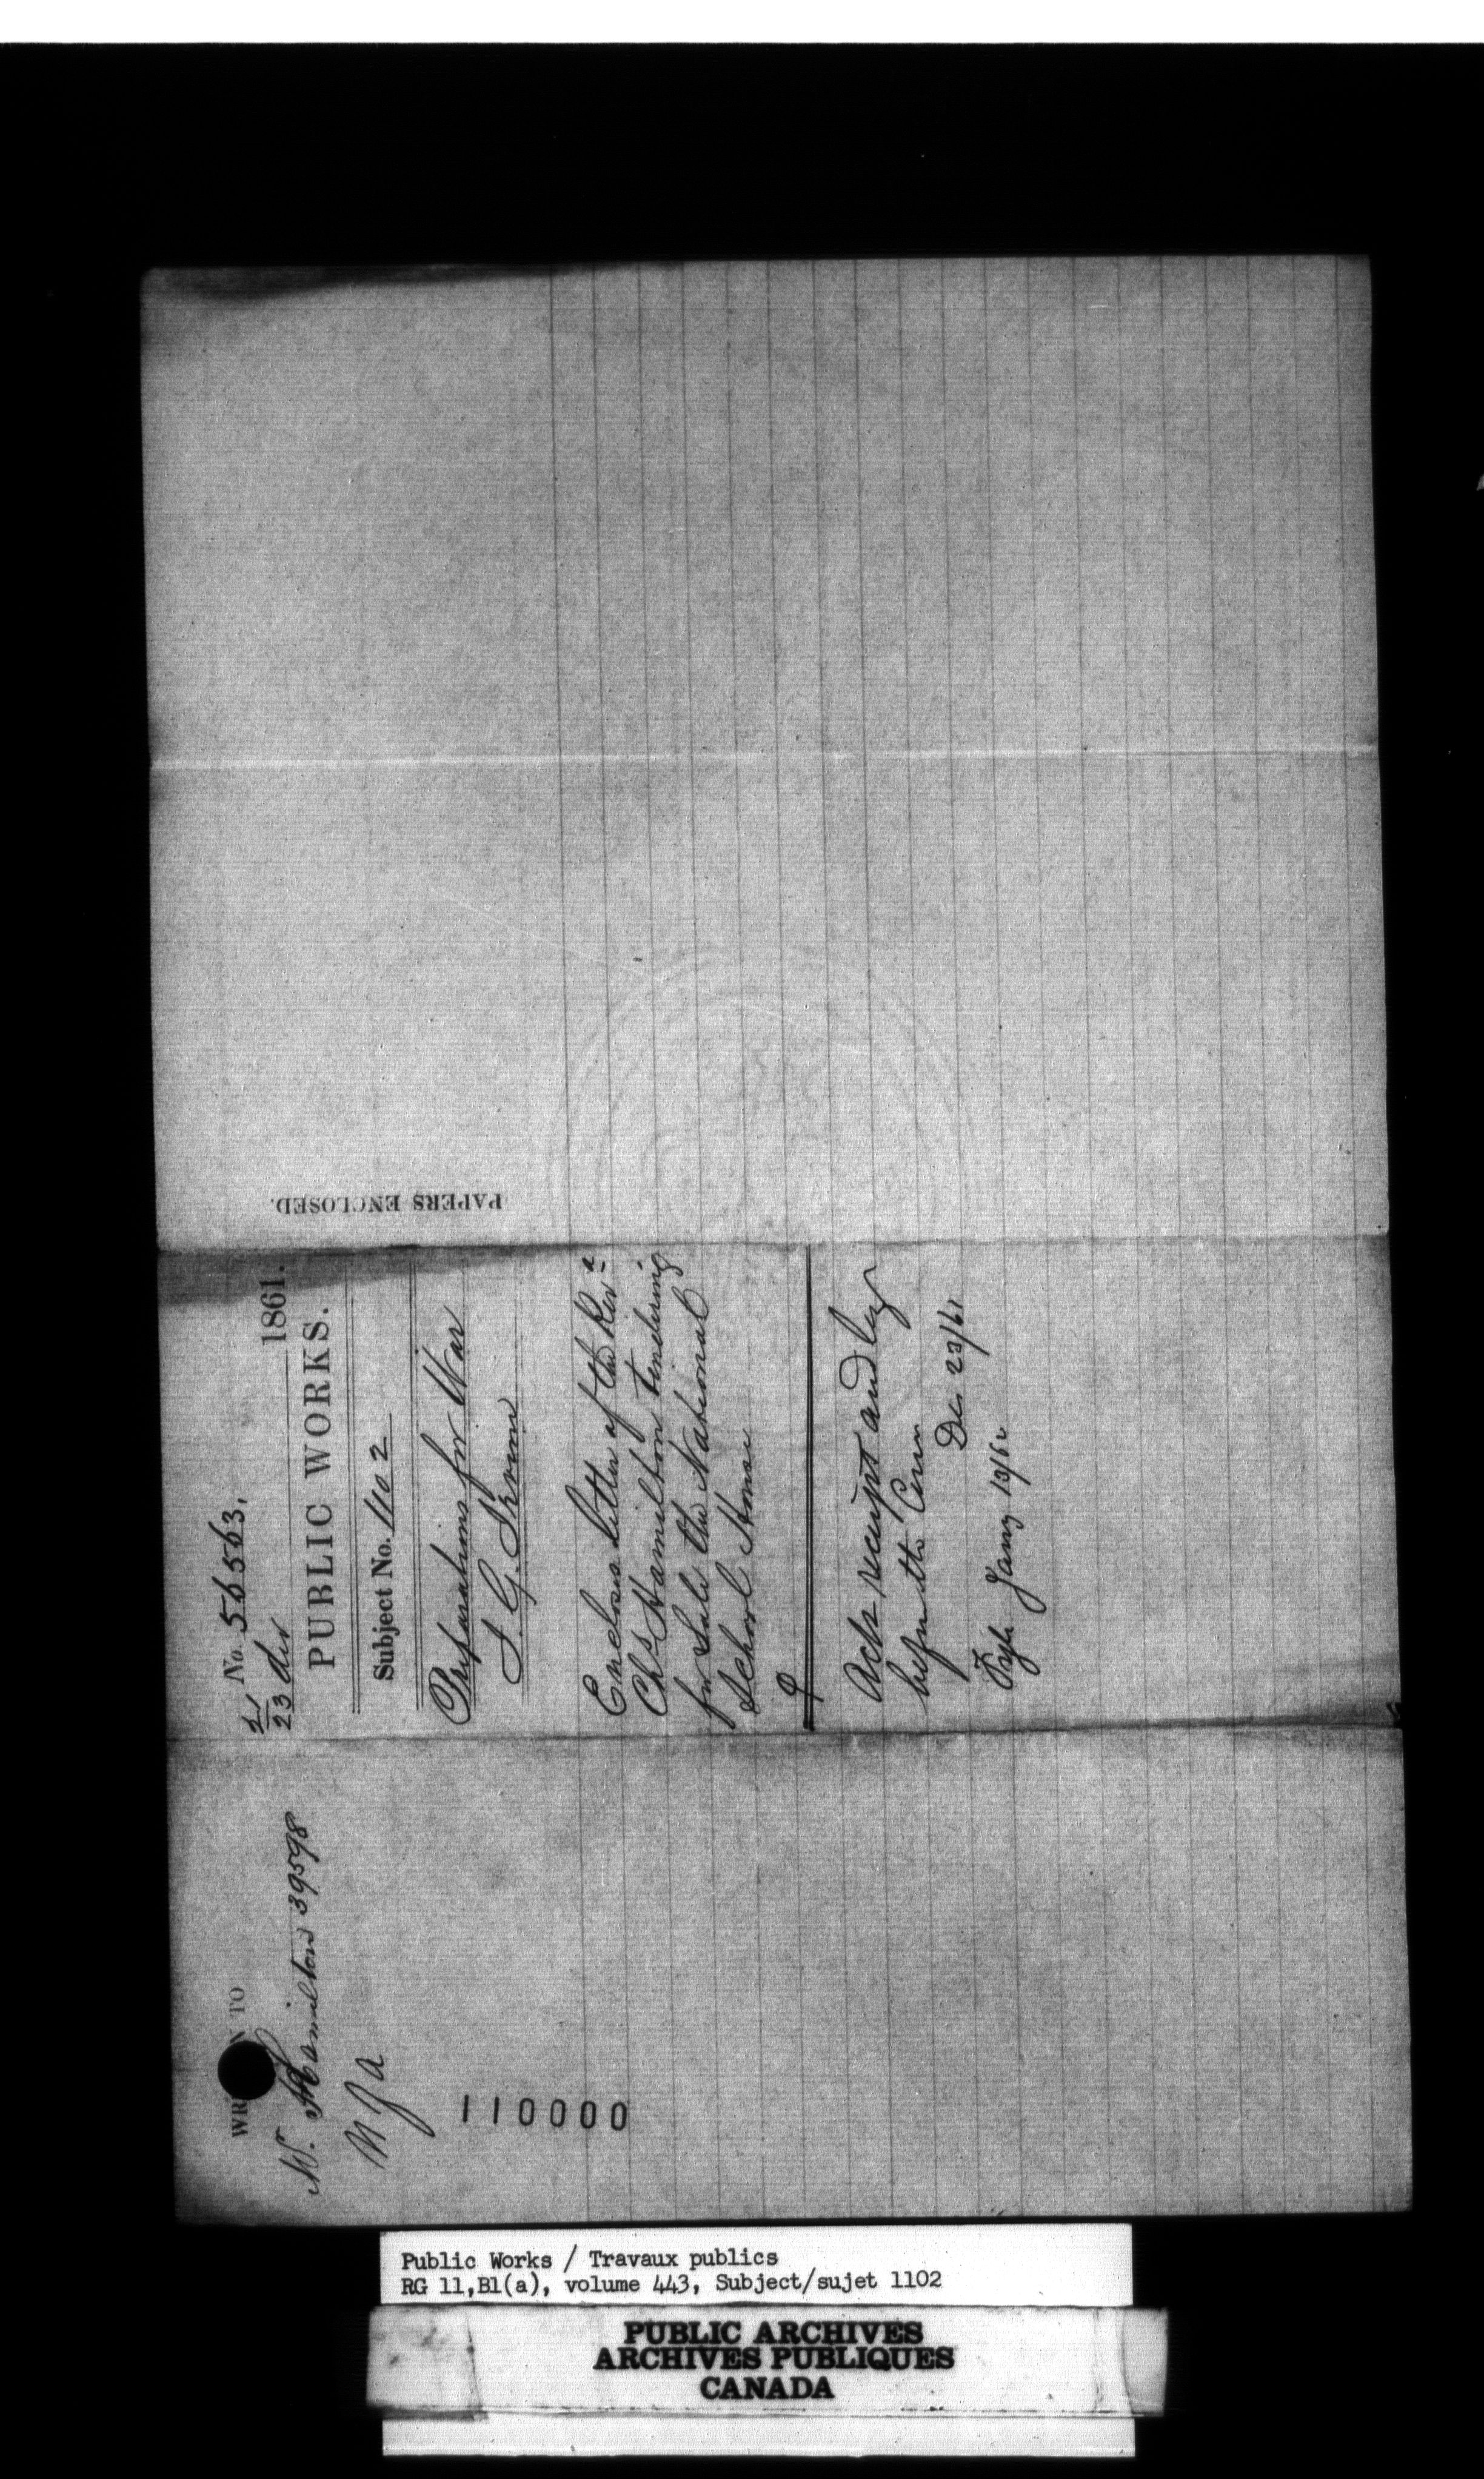 No. 56563.
21
23 Dec 1861.
PUBLIC WORKS.
Subject No. 1102
Preparations for War
Encloses letter of the Revd
Chs Hamilton tendering
for Sale the National
School House
Ack receipt and lay
before the Comn
Dec 23/61
Jany 13/62
PAPERS ENCLOSED.
TO
Hamilton 39598
110000
Public Works / Travaux publics
RG 11,B1(a), volume 443, Subject/sujet 1102
PUBLIC ARCHIVES
ARCHIVES PUBLIQUES
CANADA